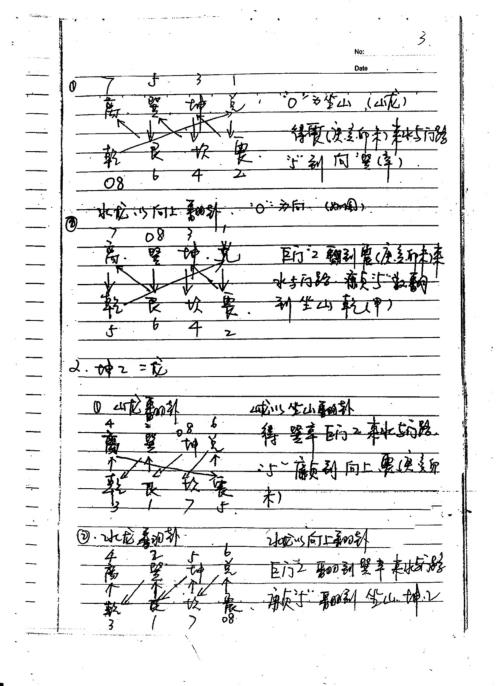 3
No:
Date
① 7 5 3 1
离 巽 坤 兑 "0"为坐山 (山龙)
得震(庚亥卯未)来水与门路
乾 艮 坎 震 "5"到向巽(辛)
08 6 4 2
水龙以向上翻卦 "0"为向
② 7 08 3 1
离 巽 坤 兑 巨门"2"翻到震(庚亥卯未)来
水与门路 廉贞"5"数翻
乾 艮 坎 震 到坐山乾(甲)
5 6 4 2
2. 坤乙二龙
① 山龙翻卦 山龙以坐山翻卦
4 2 08 6
离 巽 坤 兑 得巽辛巨门2来水与门路
"5"廉贞到向上震(庚亥卯
乾 艮 坎 震 未)
3 1 7 5
②.水龙翻卦 水龙以向上翻卦
4 2 5 6
离 巽 坤 兑 巨门"2"翻到巽辛来水与门路
乾 艮 坎 震 廉贞"5"翻到坐山坤乙
3 1 7 08